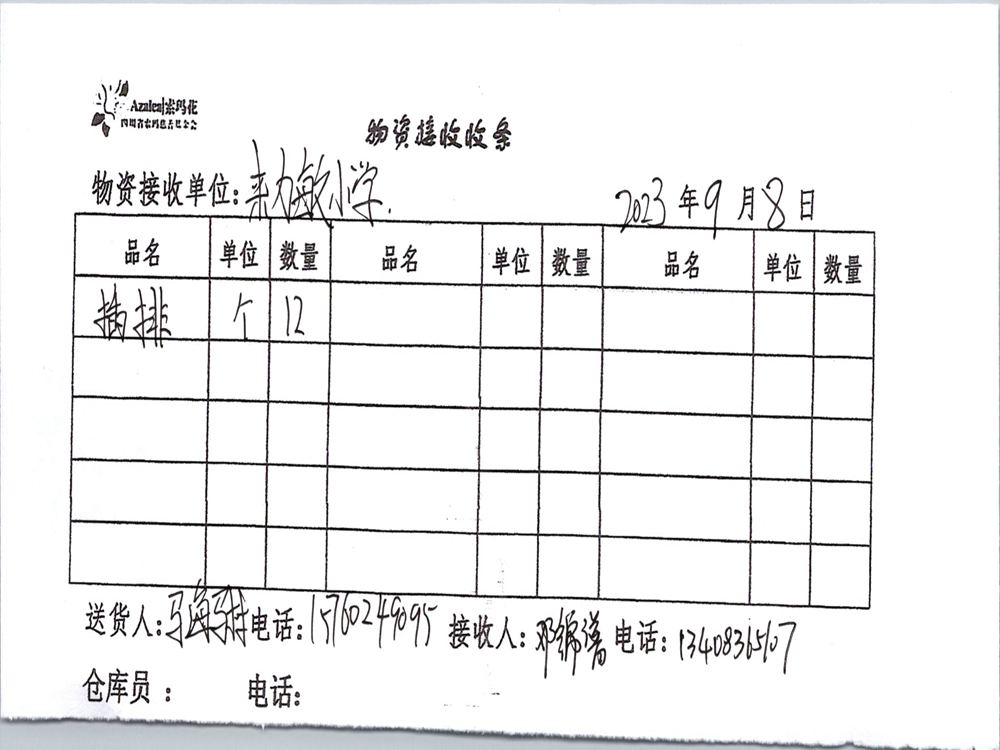 Azalea|索玛花
四川省索玛慈善基金会
物资接收收条
物资接收单位:来力敏小学.
2023年9月8日
品名 单位 数量 品名 单位 数量 品名 单位 数量
插排 个 12
送货人: 电话:15760249095 接收人:邓 电话:13408365107
仓库员: 电话: